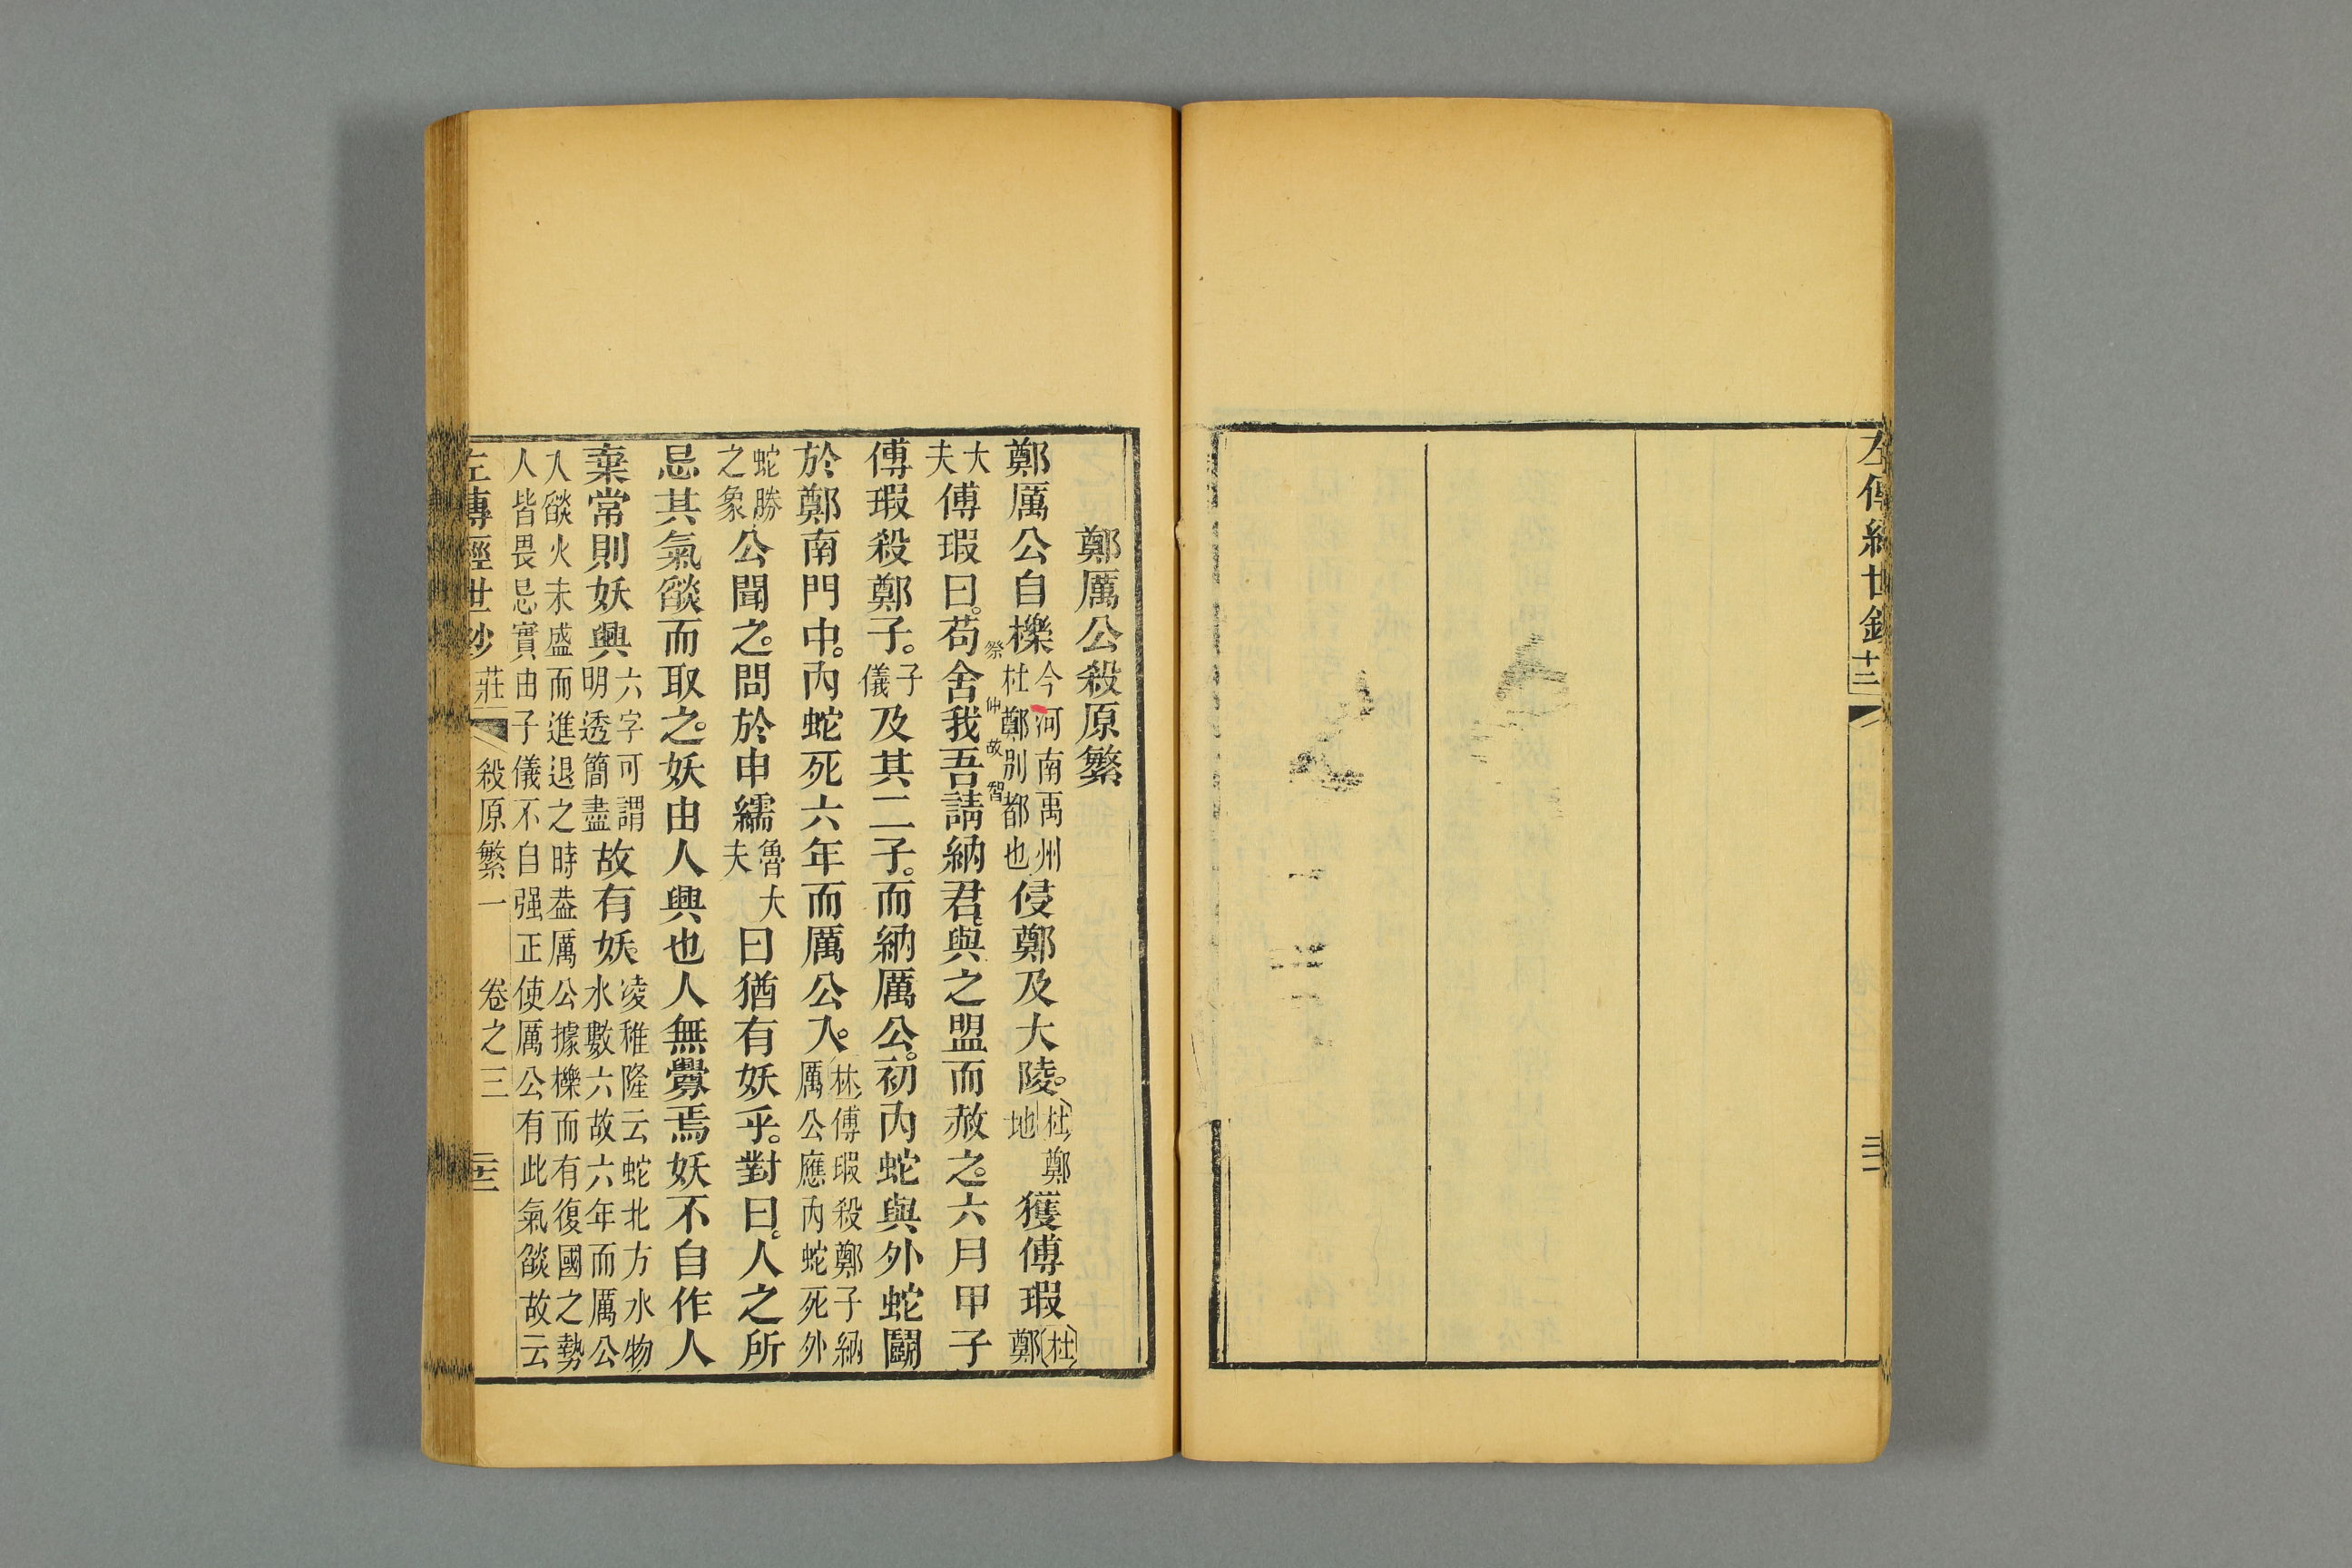 鄭厲公殺原繁
鄭厲公自櫟今河南禹州杜鄭別都也侵鄭及大陵。杜鄭地獲傅瑕杜鄭
祭仲故智
大夫傅瑕曰。苟舍我吾請納君。與之盟而赦之。六月甲子
傅瑕殺鄭子。子儀及其二子。而納厲公。初內蛇與外蛇鬭
於鄭南門中。內蛇死六年而厲公入。林傅瑕殺鄭子納厲公應內蛇死外
蛇勝之象公聞之。問於申繻魯大夫曰猶有妖乎。對曰。人之所
忌其氣燄而取之。妖由人興也人無釁焉妖不自作人
棄常則妖興六字可謂明透簡盡故有妖。凌稚隆云蛇北方水物水數六故六年而厲公
入燄火未盛而進退之時葢厲公據櫟而有復國之勢人皆畏忌實由子儀不自强正使厲公有此氣燄故云
左傳經世鈔 莊 殺原繁一 卷之三